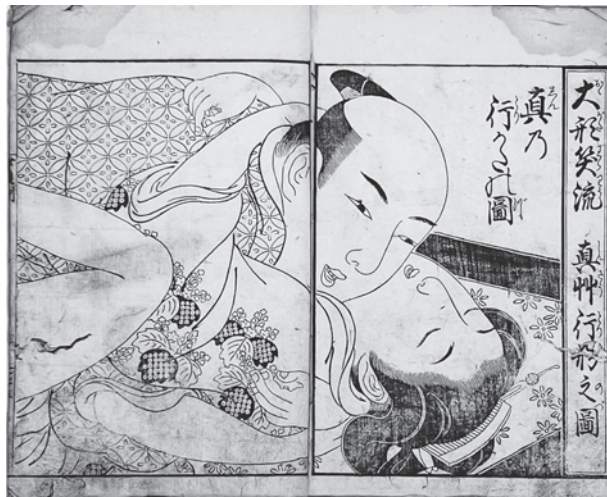 大形笑流 真艸行形之圖
真乃
行かたの圖